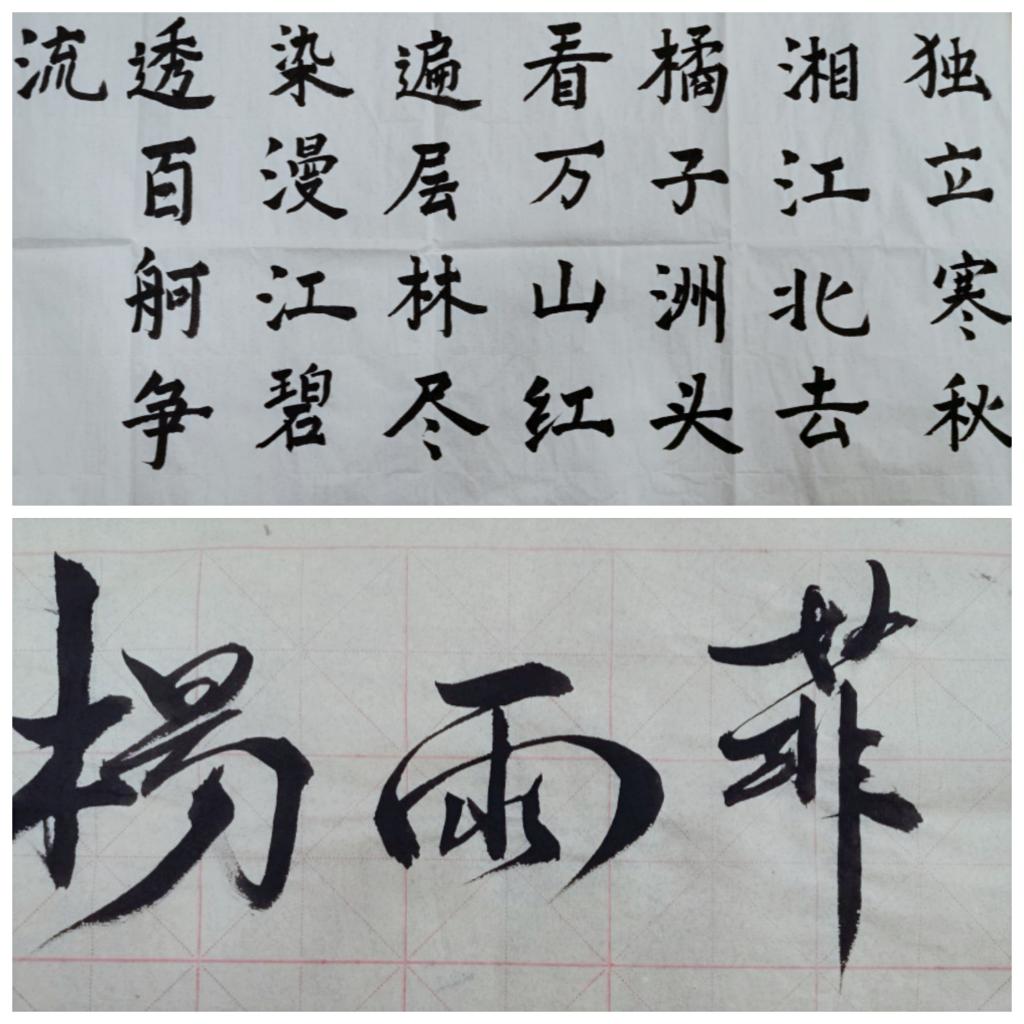 独立寒秋
湘江北去
橘子洲头
看万山红
遍层林尽
染漫江碧
透百舸争
流
楊雨菲